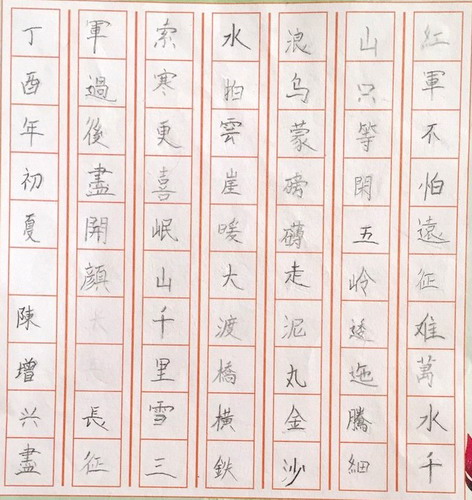 紅軍不怕遠征难萬水千
山只等閑五岭逶迤騰細
浪乌蒙磅礴走泥丸金沙
水拍雲崖暖大渡橋橫鉄
索寒更喜岷山千里雪三
軍過後盡開顔 長征
丁酉年初夏 陳增兴